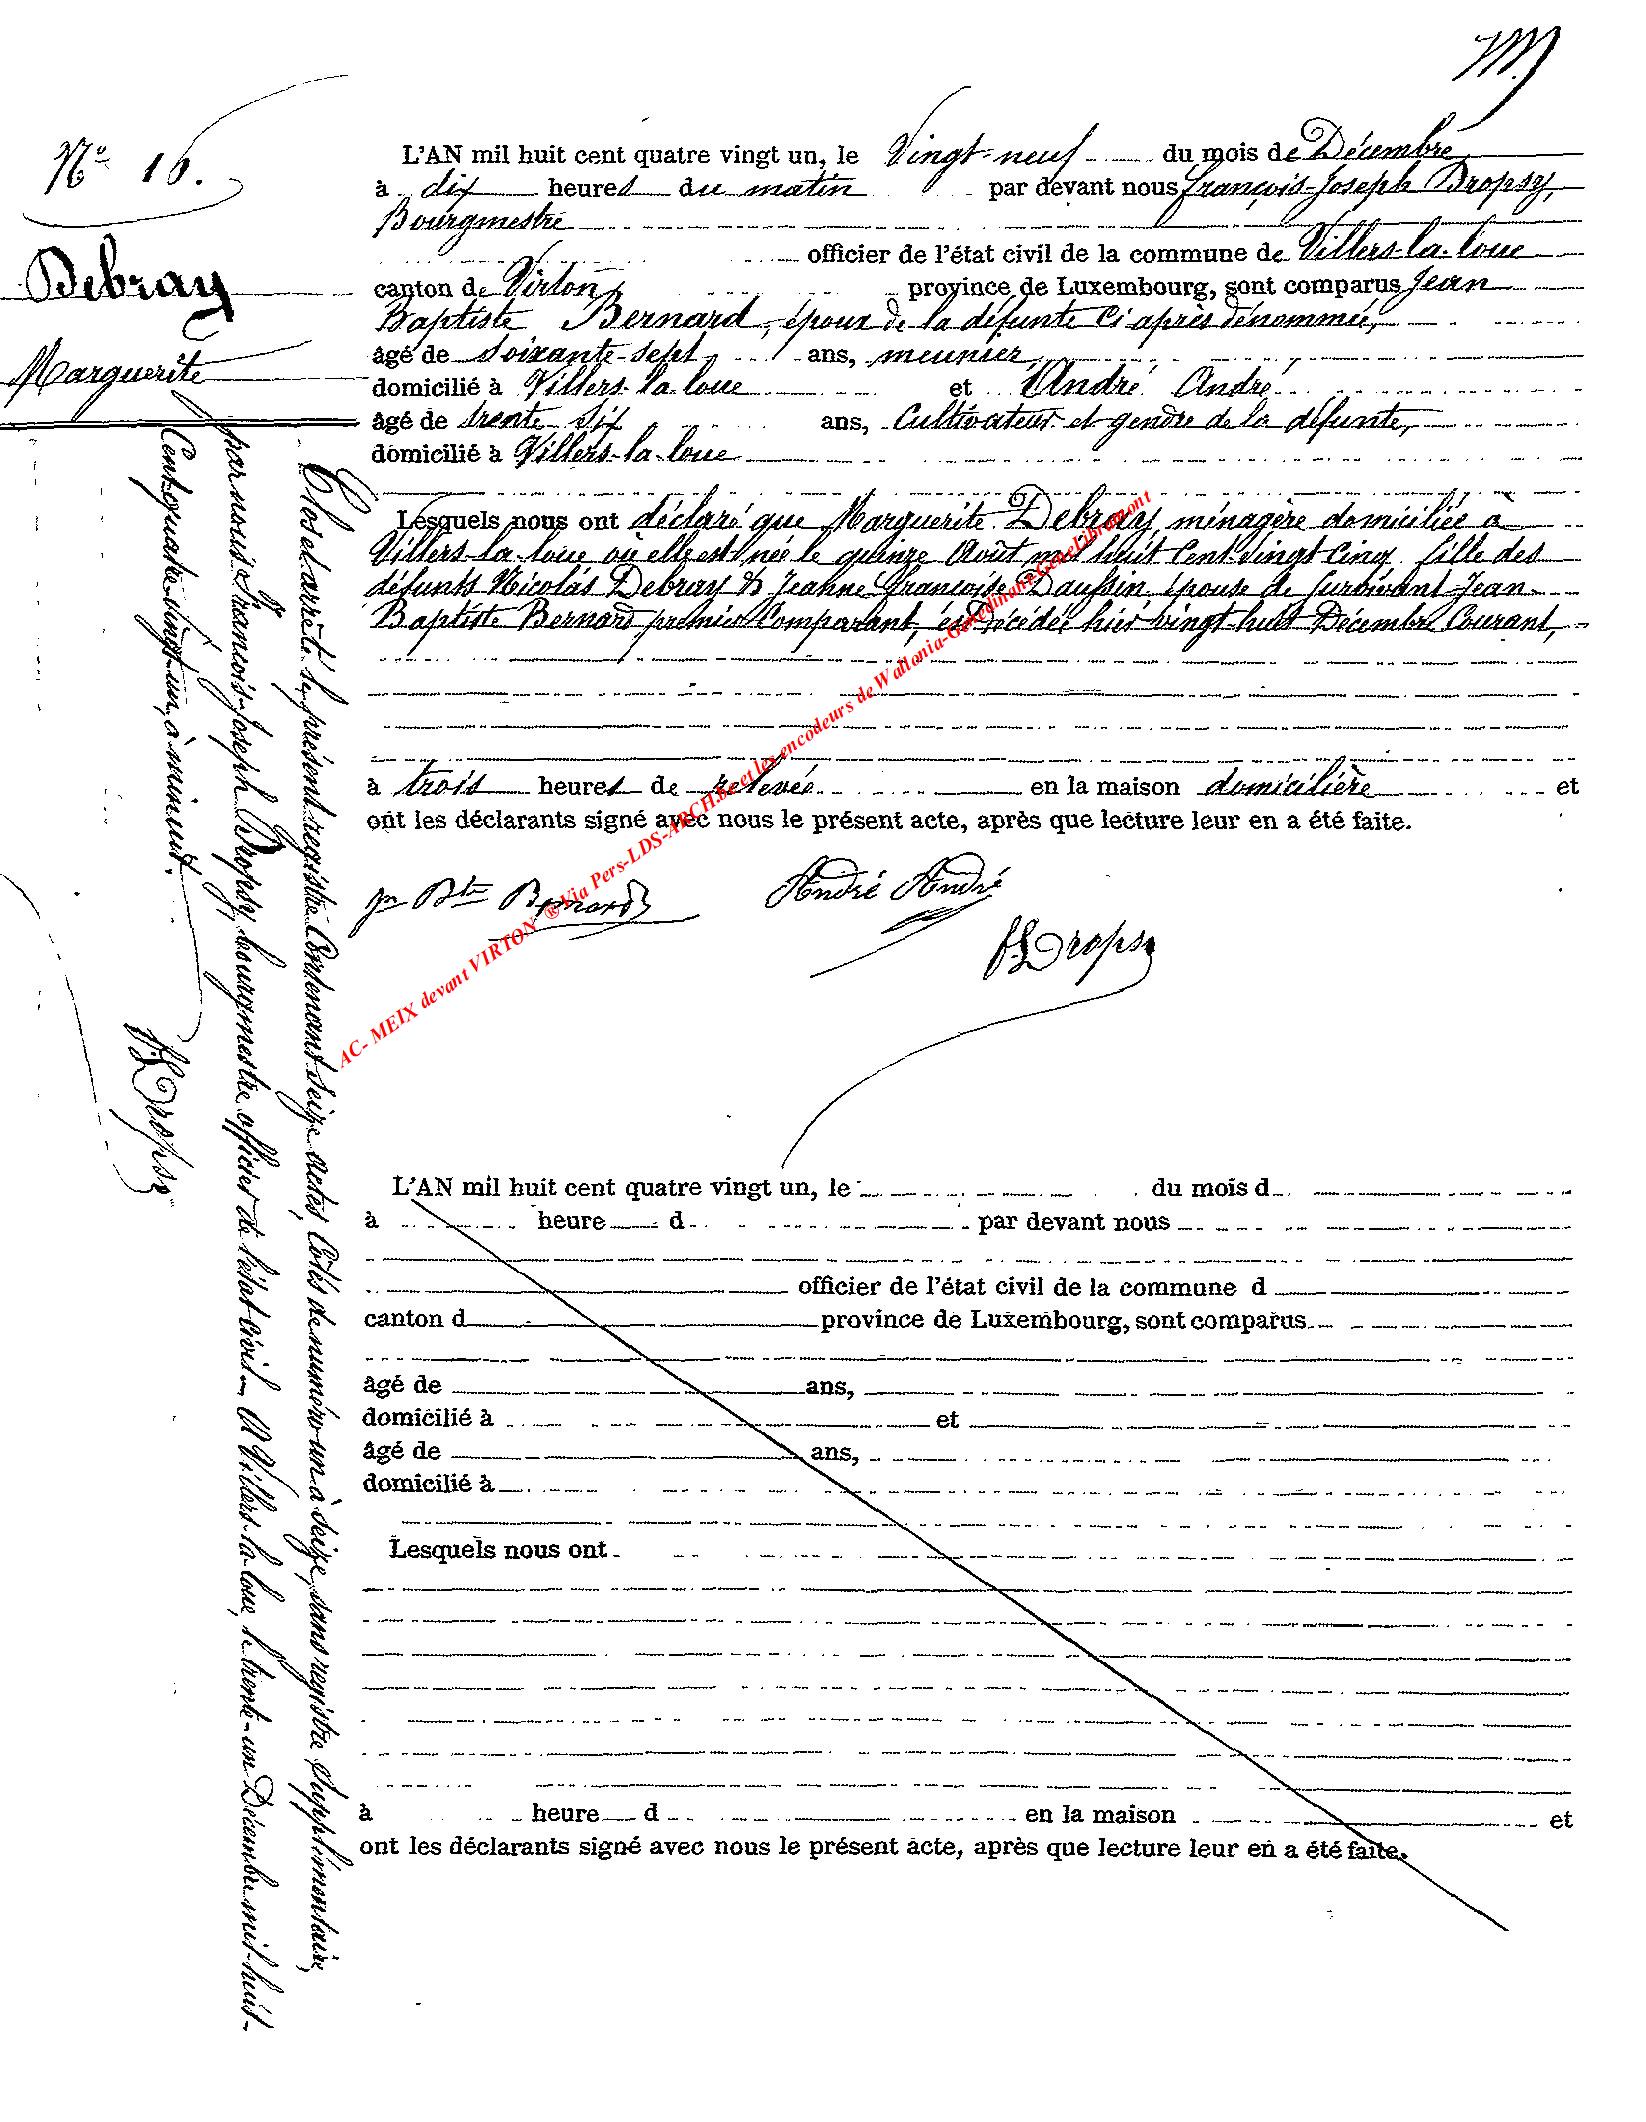 Nº 16.
Debray
Marguerite
L'AN mil huit cent quatre vingt un, le Vingt-neuf du mois de Décembre
à dix heures du matin par devant nous François-Joseph Dropsy,
Bourgmestre
officier de l'état civil de la commune de Villers-la-loue
canton de Virton province de Luxembourg, sont comparus Jean
Baptiste Bernard, époux de la défunte ci après dénommée,
âgé de soixante-sept ans, meunier,
domicilié à Villers-la-loue et André André
âgé de trente-six ans, Cultivateur et gendre de la défunte,
domicilié à Villers-la-loue
Lesquels nous ont déclaré que Marguerite Debray, ménagère domiciliée à
Villers-la-loue où elle est née le quinze Août mil huit cent vingt cinq fille des
défunts Nicolas Debray & Jeanne Françoise Daussin épouse de survivant Jean
Baptiste Bernard premier Comparant, est décédée hier vingt-huit Décembre Courant,
à trois heures de relevée en la maison domicilière et
ont les déclarants signé avec nous le présent acte, après que lecture leur en a été faite.
Jn Bte Bernard André André
F.J Dropsy
Clos et arrêté le présent registre Contenant seize actes, Cotés de numéro un à seize, sans registre supplémentaire,
par nous François-Joseph Dropsy, bourgmestre officier de l'état civil. A Villers-la-loue, le trente-un Décembre mil-huit-
Cent quatre-vingt-un, à minuit.
F.J Dropsy
AC- MEIX devant VIRTON ® Via Pers-LDS-ARCH.be et les encodeurs de Wallonia-Genedinant-GeneLibramont
L'AN mil huit cent quatre vingt un, le du mois d
à heure d par devant nous
officier de l'état civil de la commune d
canton d province de Luxembourg, sont comparus
âgé de ans,
domicilié à et
âgé de ans,
domicilié à
Lesquels nous ont
à heure d en la maison et
ont les déclarants signé avec nous le présent acte, après que lecture leur en a été faite.